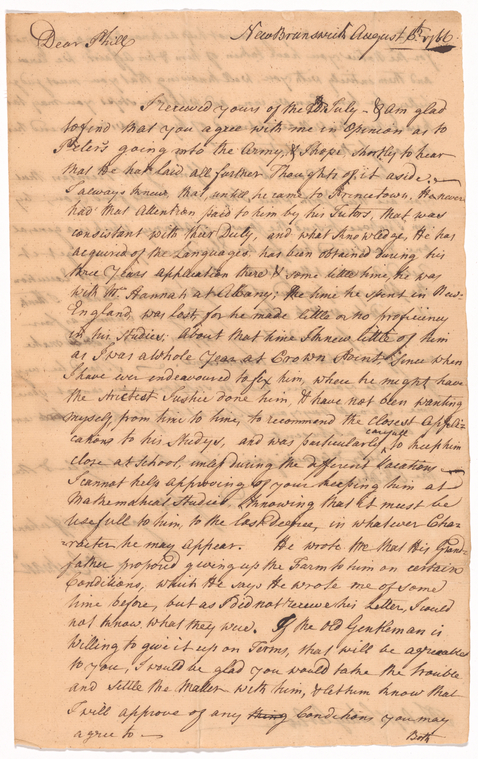 New Brunswick August 6th 1766
Dear Phill
I received yours of the July & am glad
to find that you agree with me in Opinion as to
Peter's going into the Army, & I hope shortly to hear
that He has laid all further Thoughts of it aside.
I always knew, that untill he came to Princetown, He never
had that Attention paid to him by his Tutors, that was
consistant with their Duty, and what Knowledge, He has
acquired of the Languages has been obtained during his
three Years application there & some little time he was
with Mr. Hannah at Albany; the time he spent in New-
England, was lost, for he made little or no proficiency
in his Studies; about that time I knew little of him
as I was a whole Year at Crown Point. Since when
I have ever endeavoured to fix him, where he might have
the strictest Justice done him, & have not been wanting
myself, from time to time, to recommend the closest Appli-
cations to his Studys, and was particularly carefull to keep him
close at School, unless during the different Vacations
I cannot help approving of your keeping him at
Mathematical Studies Knowing that it must be
usefull to him, to the last degree, in whatever Cha-
racter he may appear. He wrote me that His Grand-
father proposed giving up the Farm to him on certain
Conditions, which He says He wrote me of some
time before, but as I did not receive his Letter, I could
not know what they were. If the Old Gentleman is
willing to give it up on Terms, that will be agreeable
to you, I would be glad you would take the trouble
and settle the Matter with him, & let him know that
I will approve of any thing Conditions you may
agree to —
Both